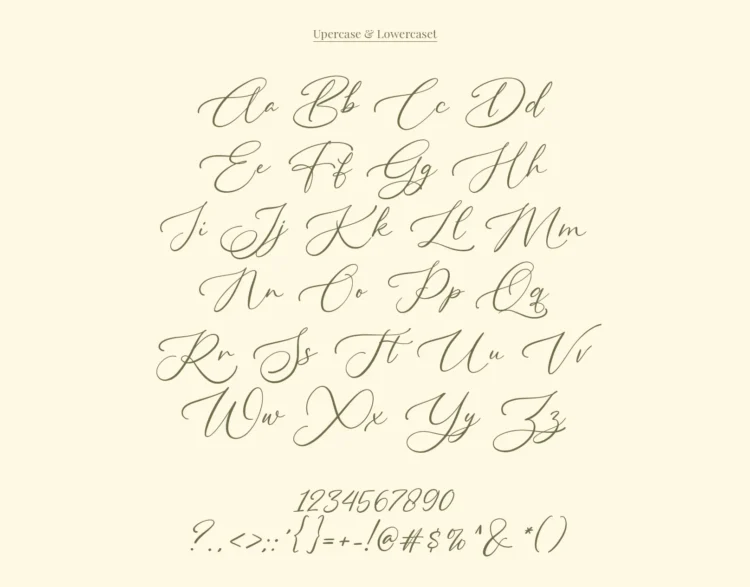 Upercase & Lowercaset
Aa Bb Cc Dd
Ee Ff Gg Hh
Ii Jj Kk Ll Mm
Nn Oo Pp Qq
Rr Ss Tt Uu Vv
Ww Xx Yy Zz
1234567890
?.,<>;:'{}=+-!@#$%^&*()